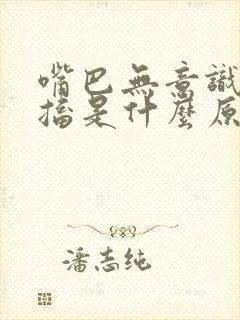 嘴巴無意識
擋是什麼原
潘志纯